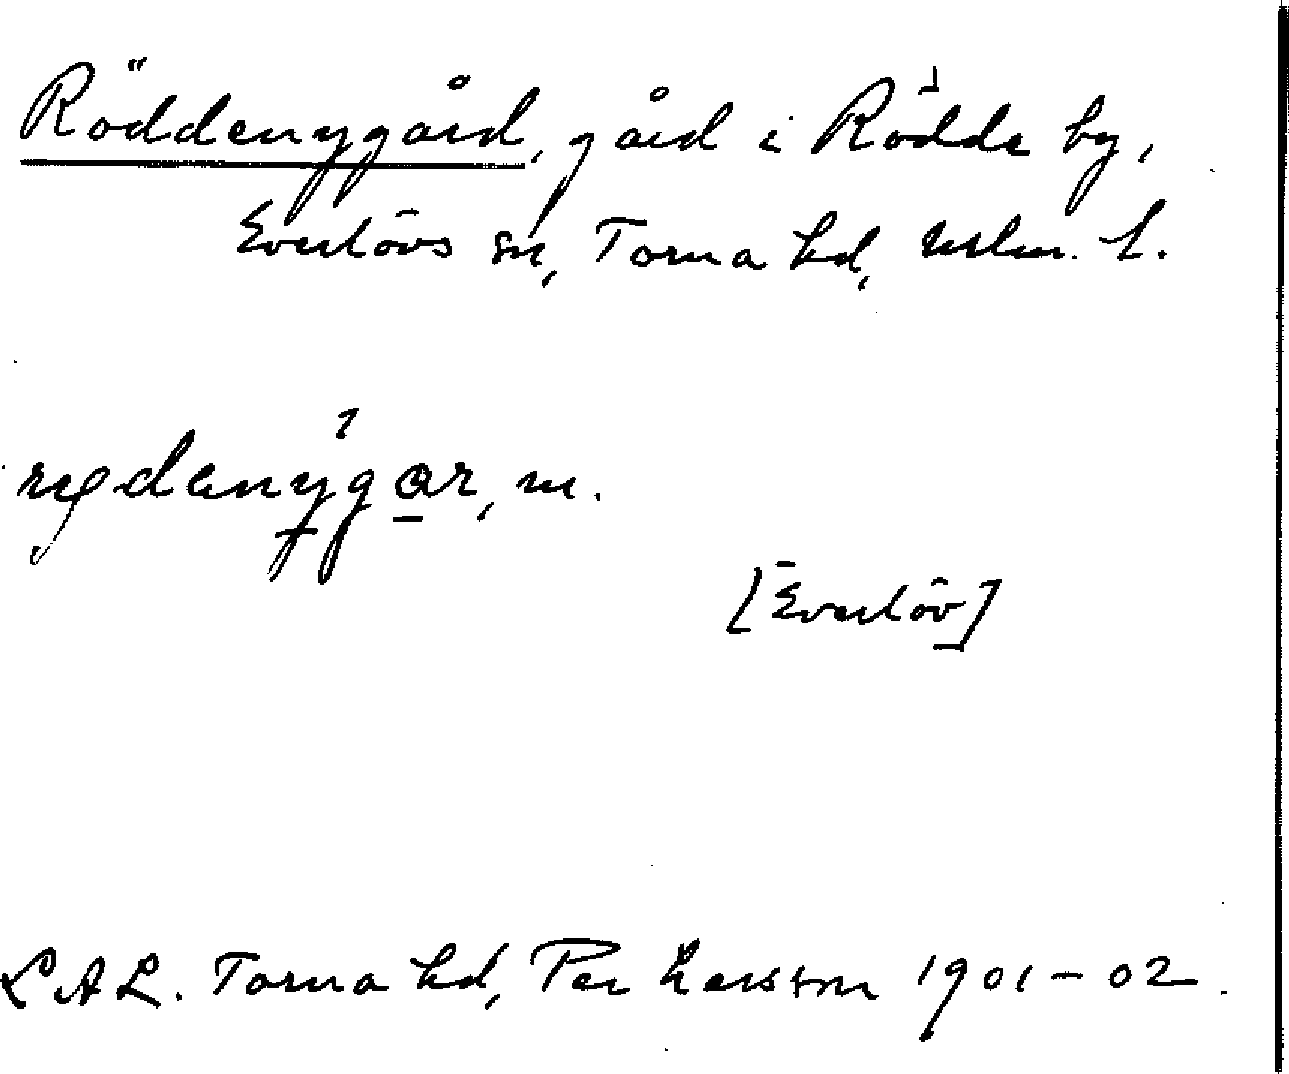 Röddenygård, gård i Rödde by,
Everlövs sn, Torna hd, Mlm. l.
m.
[Everlöv]
LAL. Torna hd, Per 1901-02.